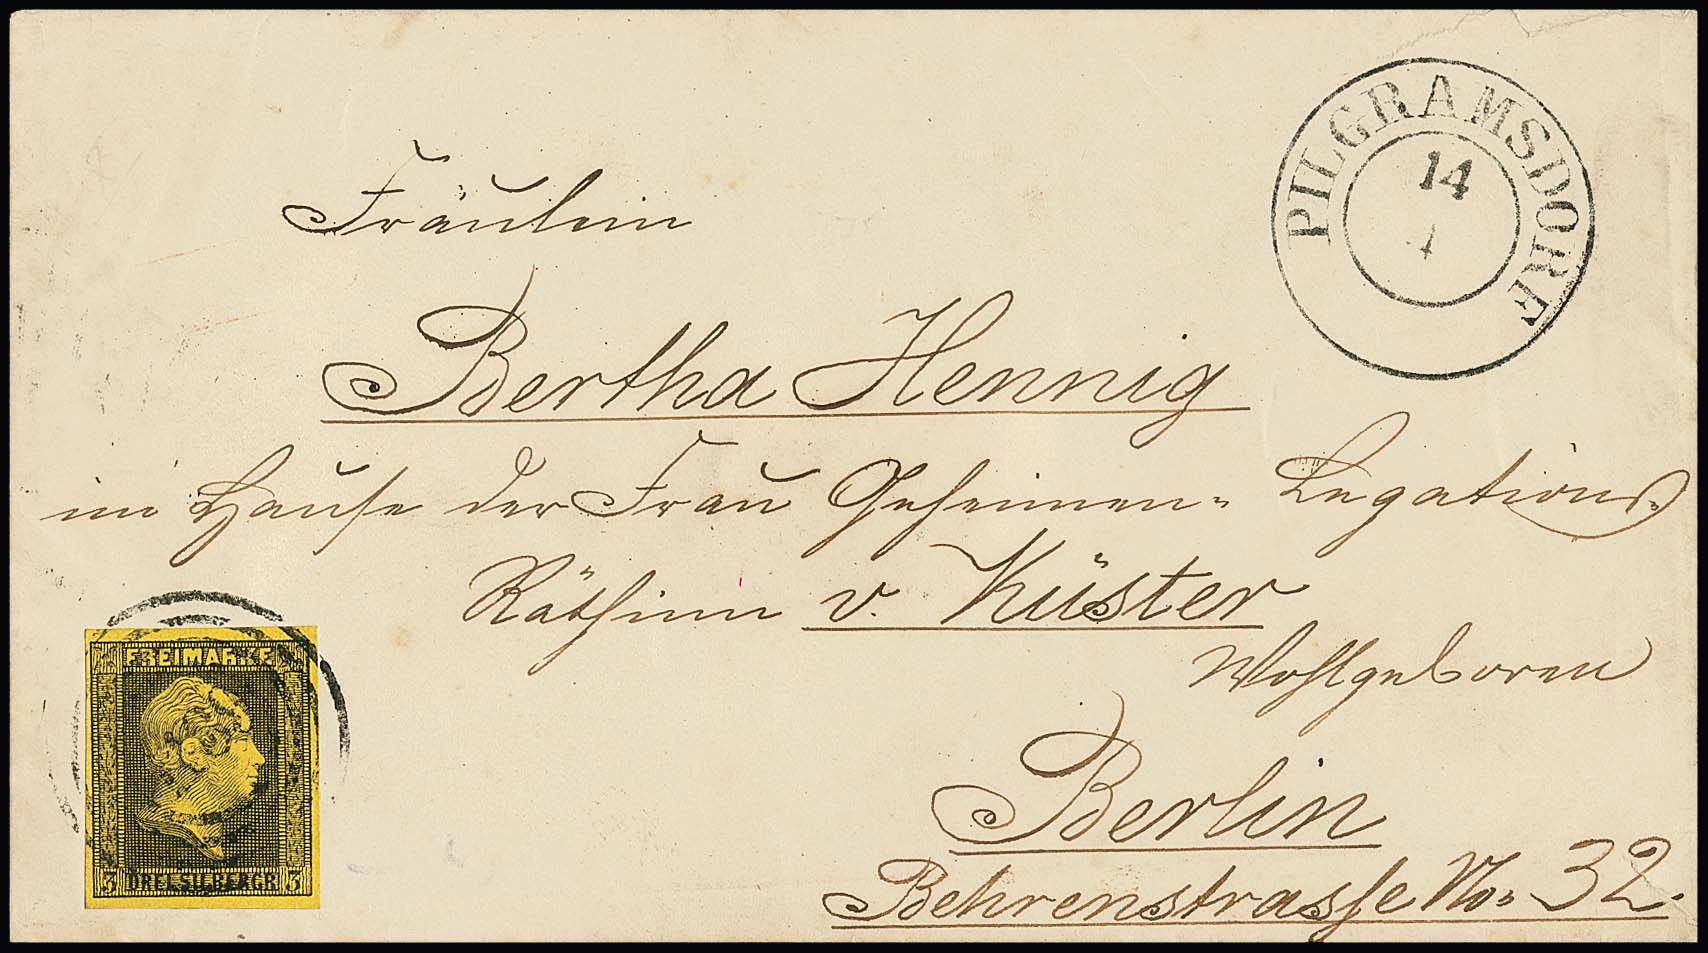 PILGRAMSDORF
14
Fräulein
Bertha Hennig
im Hause der Frau Geheimen= Legations=
Räthinn v. Küster
Wohlgeboren
Berlin
Behrenstrasse No= 32.
FREIMARKE
3 DREI SILBERGR 3